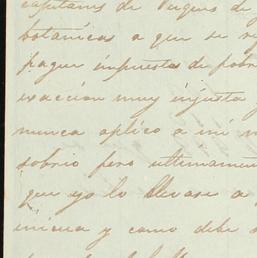 capitanes de buques de
botanicas a que se re
pagar impuestos de pobre
exacción muy injusta y
nunca aplico a mi
sobrio pero ultimament
que yo lo llevase a
inicua y como debe s